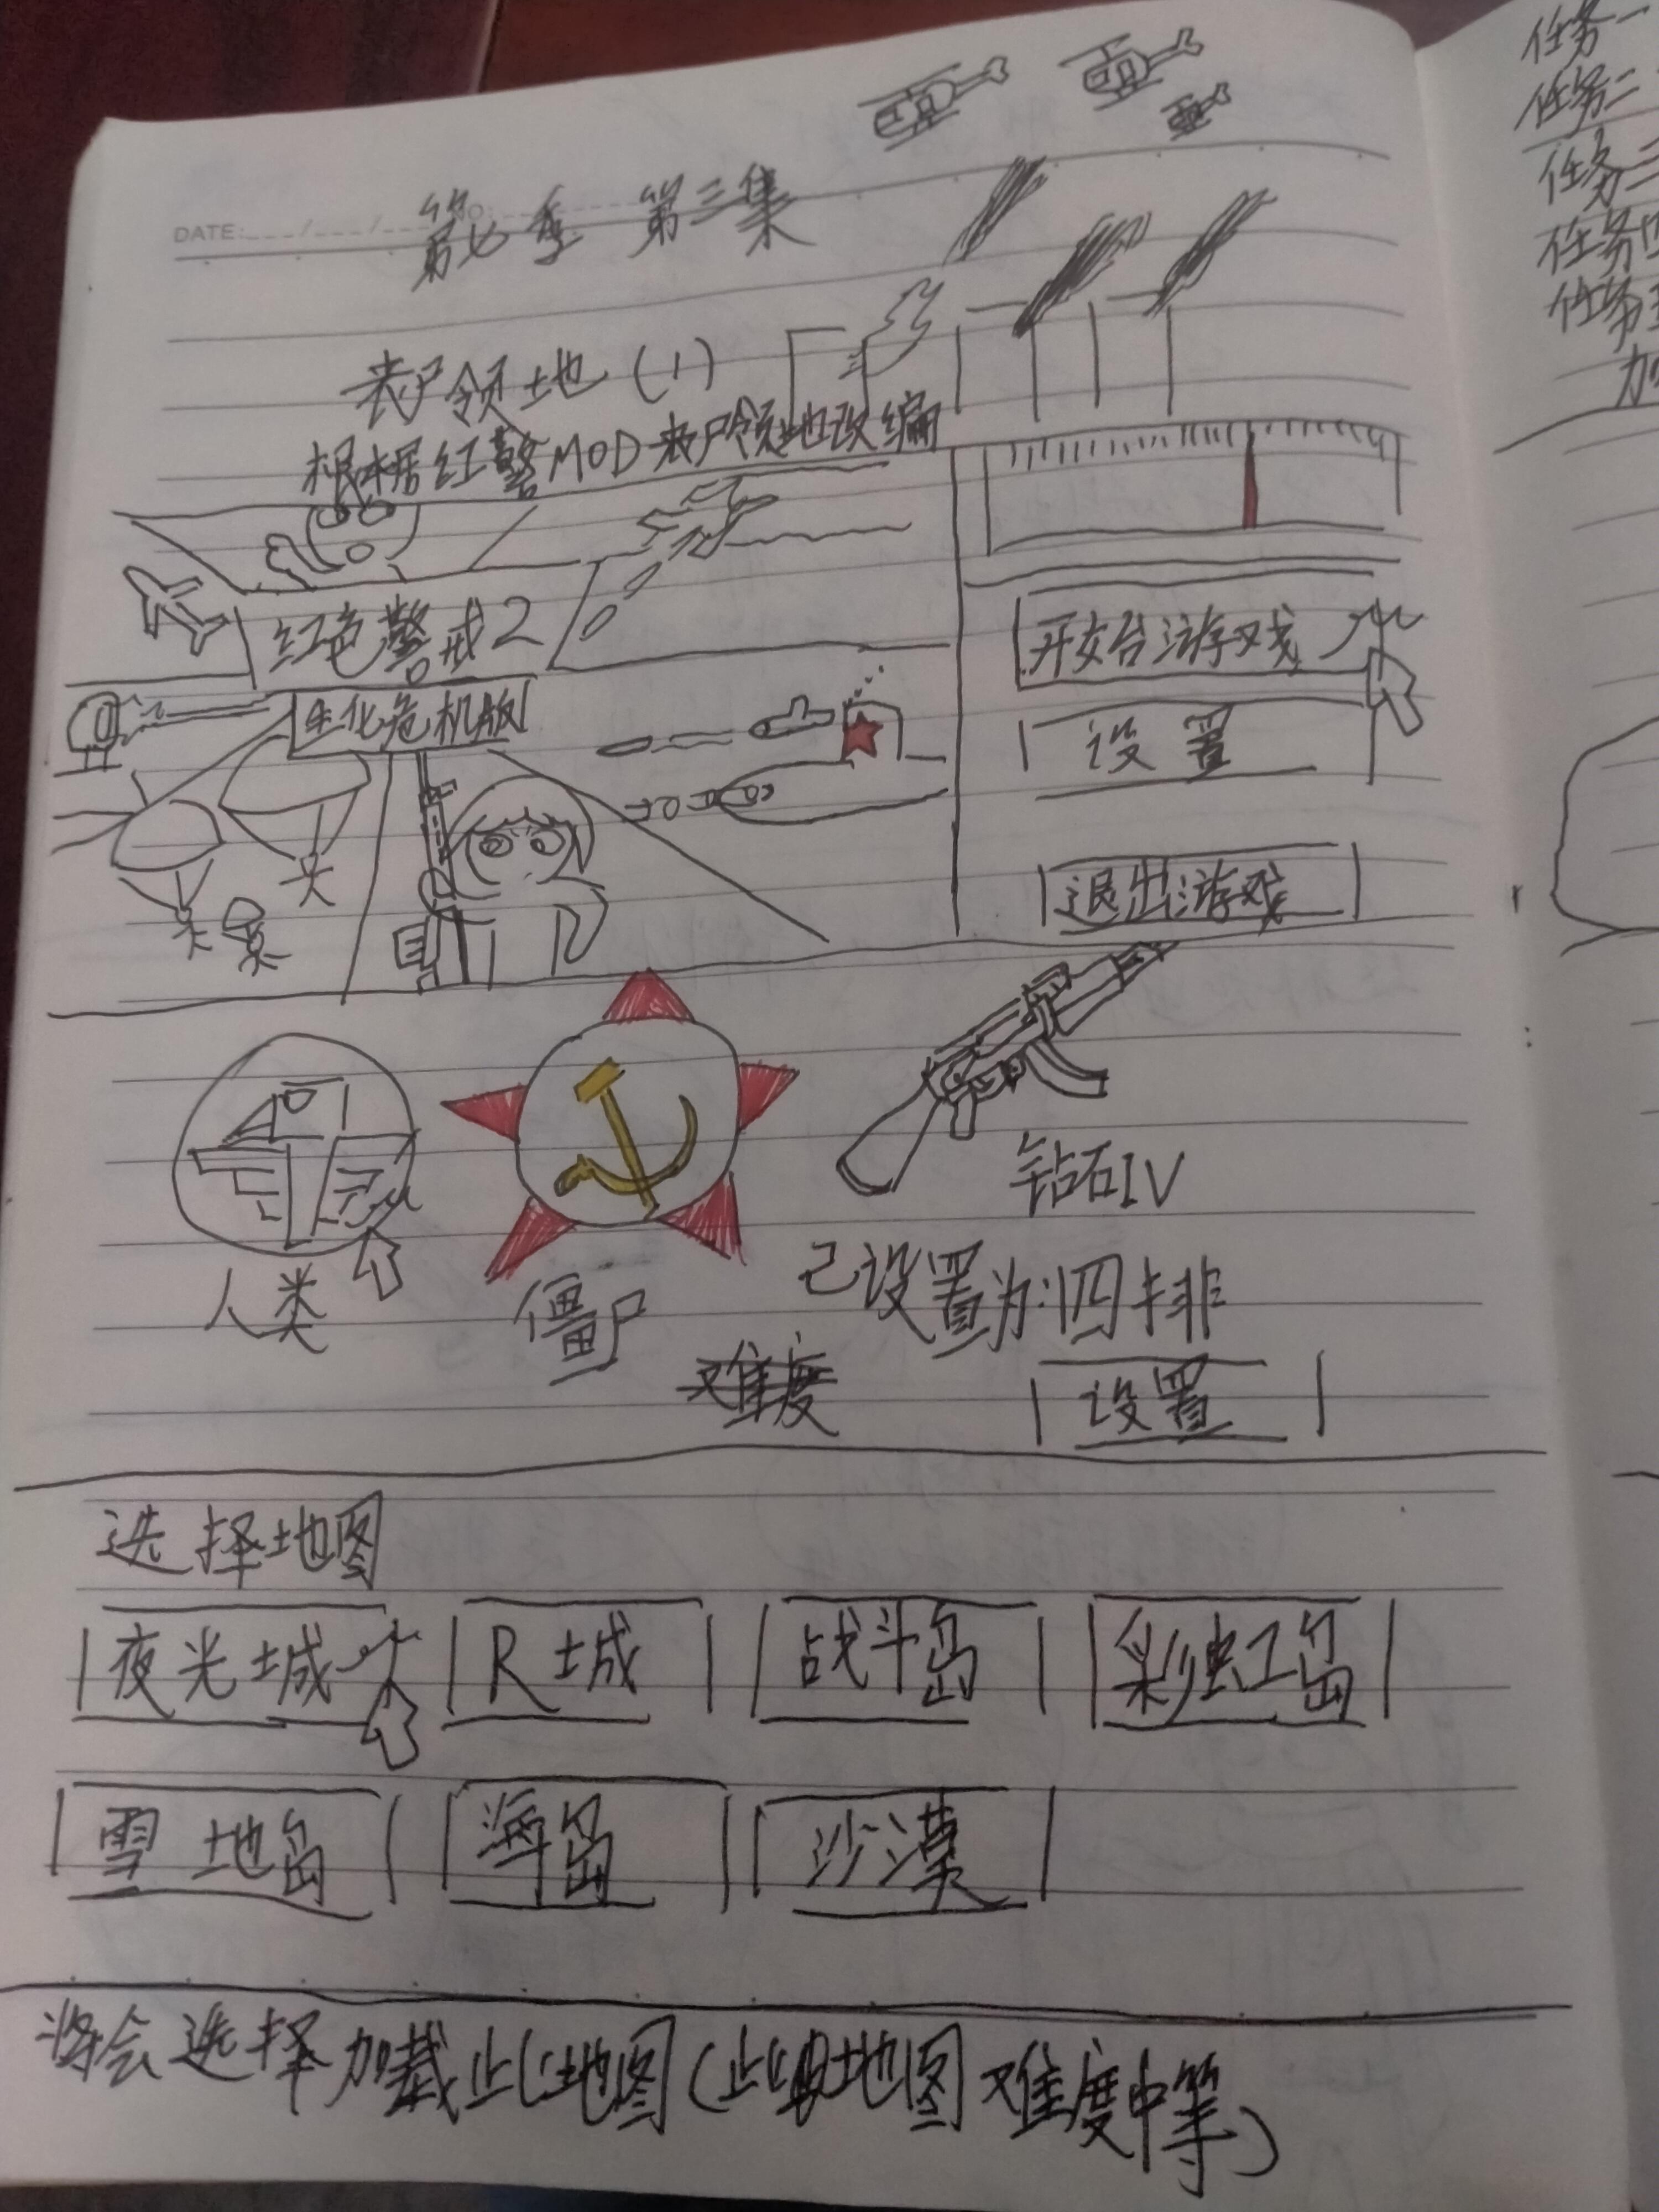 DATE: NO:
第七季 第三集
丧尸领地(1)
根据红警MOD丧尸领地改编
红色警戒2
生化危机版
开始游戏
设置
退出游戏
人类
僵尸
钻石IV
已设置为:四排
难度
设置
选择地图
夜光城 R城 战斗岛 彩虹岛
雪地岛 海岛 沙漠
将会选择加载此地图(此地图难度中等)
任务一
任务二
任务三
任务四
任务五
加